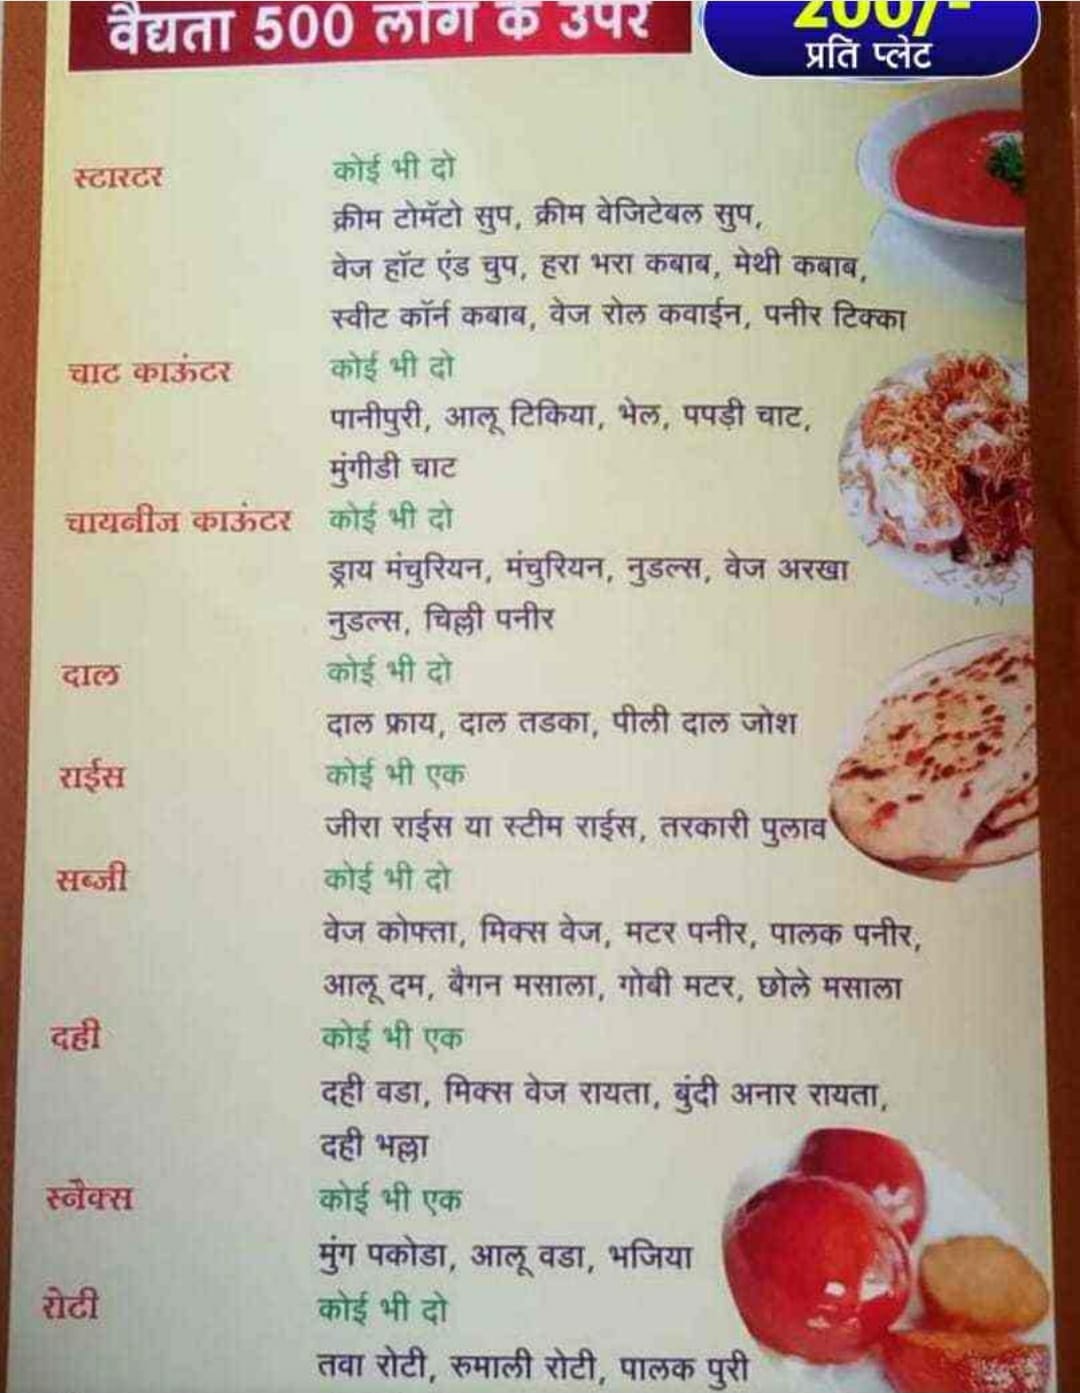 वैद्यता 500 लोग के उपर
200/-
प्रति प्लेट
स्टारटर
कोई भी दो
क्रीम टोमॅटो सुप, क्रीम वेजिटेबल सुप,
वेज हॉट एंड चुप, हरा भरा कबाब, मेथी कबाब,
स्वीट कॉर्न कबाब, वेज रोल कवाईन, पनीर टिक्का
चाट काऊंटर
कोई भी दो
पानीपुरी, आलू टिकिया, भेल, पपड़ी चाट,
मुंगीडी चाट
चायनीज काऊंटर
कोई भी दो
ड्राय मंचुरियन, मंचुरियन, नुडल्स, वेज अरखा
नुडल्स, चिल्ली पनीर
दाल
कोई भी दो
दाल फ्राय, दाल तडका, पीली दाल जोश
राईस
कोई भी एक
जीरा राईस या स्टीम राईस, तरकारी पुलाव
सब्जी
कोई भी दो
वेज कोफ्ता, मिक्स वेज, मटर पनीर, पालक पनीर,
आलू दम, बैगन मसाला, गोबी मटर, छोले मसाला
दही
कोई भी एक
दही वडा, मिक्स वेज रायता, बुंदी अनार रायता,
दही भल्ला
स्नैक्स
कोई भी एक
मुंग पकोडा, आलू वडा, भजिया
रोटी
कोई भी दो
तवा रोटी, रुमाली रोटी, पालक पुरी